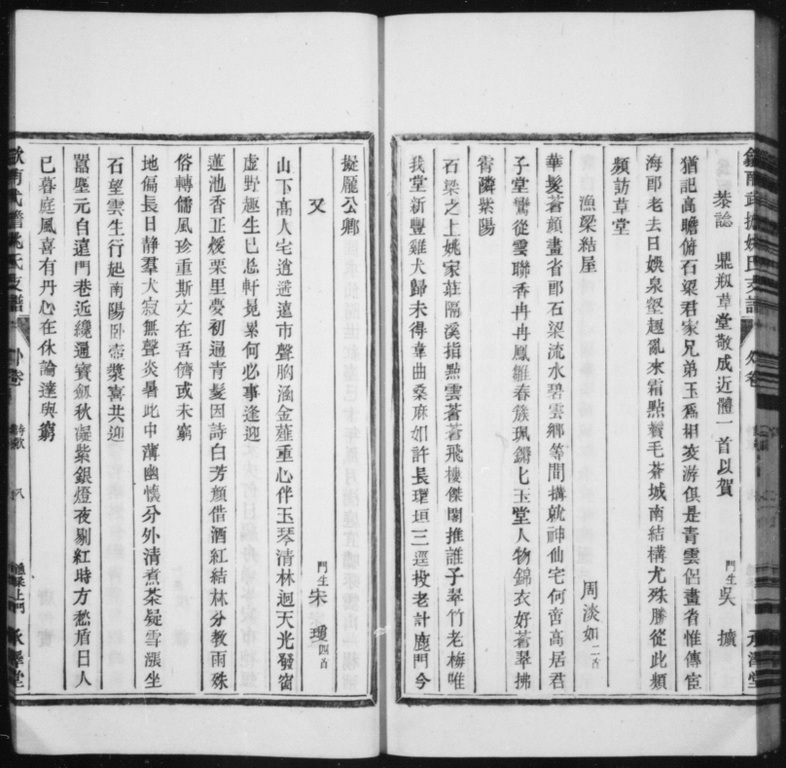 恭諗　鼎瓶草堂敬成近體一首以賀
門生吳擴
猶記高瞻俯石梁君家兄弟玉爲相交游俱是青雲侶畫省惟傳宦
海郎老去日娛泉壑趣亂來霜點鬢毛蒼城南結構尤殊勝從此頻
頻訪草堂
漁梁結屋　周淡如二首
華髮蒼顏畫省郎石梁流水碧雲鄉等間搆就神仙宅何啻高居君
子堂鸞從雲聯香冉冉鳳雛春簇珮鏘七玉堂人物錦衣好著翠拂
霄隣紫陽
石梁之上姚家莊隔溪指點雲蒼蒼飛樓傑閣推誰子翠竹老梅唯
我堂新豐雞犬歸未得韋曲桑麻如許長環垣三逕投老計鹿門今
擬龎公鄉
又　門生朱瓊四首
山下高人宅逍遙遠市聲胸涵金薤重心伴玉琴清林迥天光發窗
虛野趣生已忘軒冕累何必事逢迎
蓮池香正煖栗里夢初通青髮因詩白芳顏借酒紅結林分教雨殊
俗轉儒風珍重斯文在吾儕或未窮
地偏長日静羣犬寂無聲炎暑此中薄幽懷分外清煮茶髭雪漲坐
石望雲生行起南陽卧壺漿喜共迎
嚣塵元自遠門巷近纔通寶劔秋凝紫銀燈夜剔紅時方愁盾日人
已暮庭風喜有丹心在休論達與窮
承澤堂